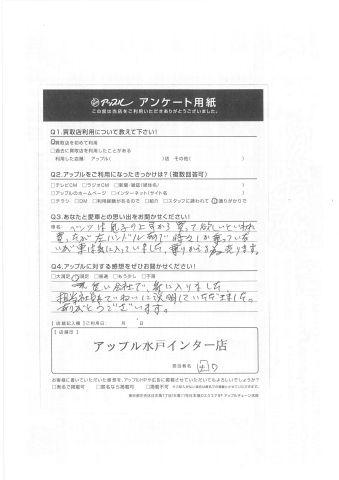 アップル アンケート用紙
この度は当店をご利用いただきありがとうございました。
Q1.買取店利用について教えて下さい!
買取店を初めて利用
□過去に買取店を利用したことがある
利用した店舗: アップル( )店 その他( )
Q2.アップルをご利用になったきっかけは?(複数回答可)
□テレビCM □ラジオCM □新聞・雑誌(媒体名/ )
□アップルのホームページ □インターネット(サイト名 )
□チラシ □DM □利用経験があるので □紹介 □スタッフに誘われて 通りがかりで
Q3.あなたと愛車との思い出をお聞かせください!
車名: ベンツは息子の上司から買って欲しいといわれ
買ったが左ハンドルなので時々しか乗っていな
いが車は気に入っていました。乗りから 売ります。
Q4.アップルに対する感想をぜひお聞かせください!
□大満足 満足 □普通 □もう少し □不満
良い会社で、気に入りました。
担当者もていねいに説明していただきました。
ありがとうございます。
【店舗記入欄】ご利用日: 月 日
【店舗】
アップル水戸インター店
担当者名
お客様に書いていただいた感想を、アップルHPや広告に掲載させていただいてもよろしいでしょうか?
□実名で掲載可 □匿名なら掲載可 □掲載不可